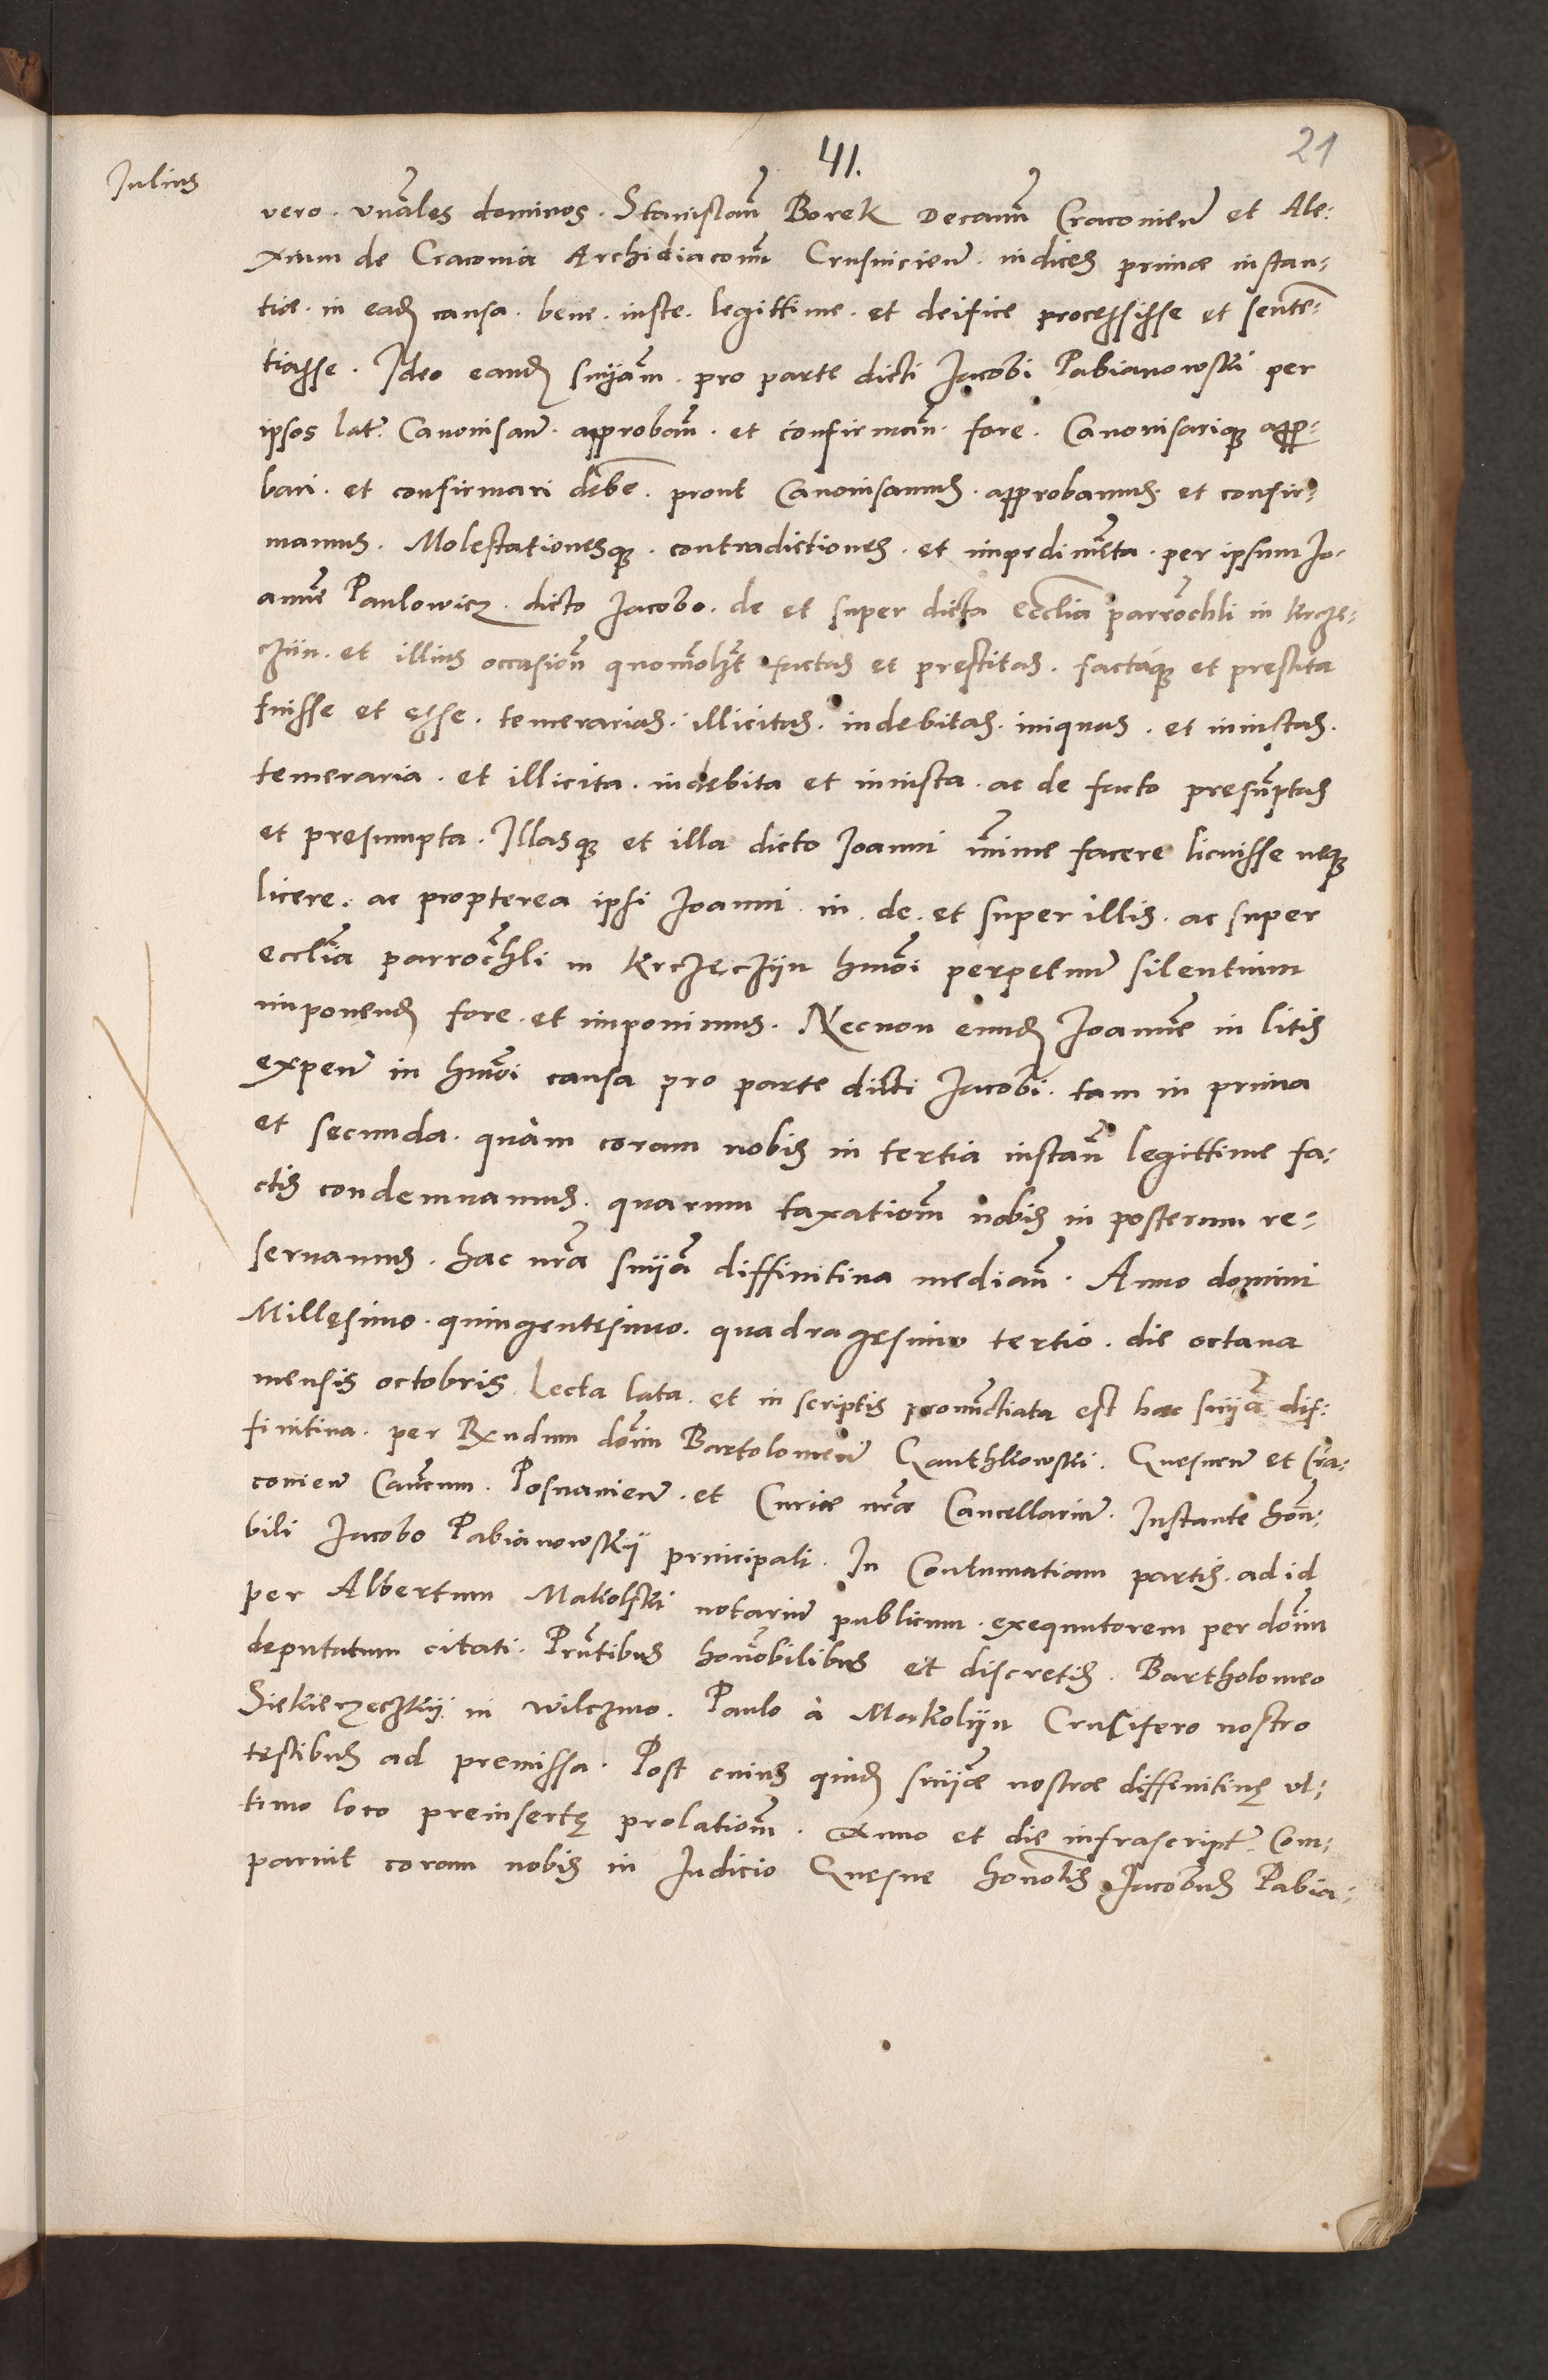 41.
21
Iulius
vero. vnãles dominos. Stanislaũ Borek Decanũ Cracovieñ et Ale:
xium de Cracovia Archidiaconũ Crusvicieñ. iudices primæ instan,
tiæ. in eadẽ causa. bene. iuste. legittime. et deifice processisse et senteñ
tiasse. Ideo eandẽ sniãm. pro parte dicti Iacobi Pabianowski per
ipsos lat. Canonisanđ. approbanđ. et confirmanđ. fore. Canonisariq3 appro,
bari. et confirmari debẽ. prout Canonisamus. approbamus. et confir,
mamus. Molestationesq3. contradictiones. et impedimẽta. per ipsum Jo,
annẽ Paulowicz. dicto Jacobo. de et super dicta eccłia parrochli in Krcze,
cziin. et illius occasioñ quomolbt factas et prestitas. factaq3 et prestita
fuisse et esse. temerarias. illicitas. indebitas. iniquas. et iniustas.
temeraria. et illicita. indebita et iniusta. ac de facto presũptas
et presumpta. Illasq3 et illa dicto Joanni mĩime facere licuisse neq3
licere. ac propterea ipsi Joanni. in. de. et super illis. ac super
ecclĩa parrochli in Krczecziin hmõi perpetuũ silentium
imponendũ fore. et imponimus. Necnon eundẽ Joannẽ in litis
expeñ in hmõi causa pro parte dicti Jacobi. tam in prima
et secunda. quàm coram nobis in tertia instañ legittime fa,
ctis condemnamus. quarum taxationẽ nobis in posterum re,
seruamus. hac nrã sniã diffinitiua mediañ. Anno domini
Millesimo. quingentesimo. quadragesimo tertio. die octaua
mensis octobris. Lecta lata. et in scriptis pronũctiata est hæc sniã dif:
finitiua. per Rxndum dõim Bartolomeũ Ganthkowski. Gnesneñ et Cra,
covieñ Cañcum. Posnanieñ. et Curiæ nræ Cancellariũ. Instante hoñ,
bili Jacobo Pabianowskij principali. In Contumatiam partis. ad id
per Albertum Makolski notariũ publicum. exequutorem per dõim
deputatum citati. Prñtibus honorabilibus et discretis. Bartholomeo
Siekierzeczkij in Wilczno. Paulo à Makoliin Crucifero nostro
testibus ad premissa. Post cuius quidẽ sniæ nostræ diffinitiuę vl,
timo loco preinsertę prolationẽ. Anno et die infrascript. Com,
paruit coram nobis in Iudicio Gnesne honoblis Jacobus Pabia,